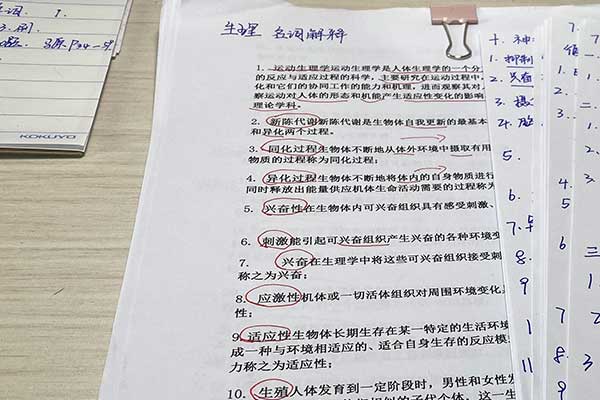 生理 名词解释
1. 运动生理学运动生理学是人体生理学的一个分
的反应与适应过程的科学，主要研究在运动过程中，
化和它们的协同工作的能力和机理，进而观察其对
察运动对人体的形态和机能产生适应性变化的影响
理论学科。
2. 新陈代谢新陈代谢是生物体自我更新的最基本
和异化两个过程。
3. 同化过程生物体不断地从体外环境中摄取有用
物质的过程称为同化过程；
4. 异化过程生物体不断地将体内的自身物质进行
同时释放出能量供应机体生命活动需要的过程称为
5. 兴奋性在生物体内可兴奋组织具有感受刺激、
6. 刺激能引起可兴奋组织产生兴奋的各种环境变
7. 兴奋在生理学中将这些可兴奋组织接受刺
称之为兴奋；
8. 应激性机体或一切活体组织对周围环境变化
性；
9. 适应性生物体长期生存在某一特定的生活环境
成一种与环境相适应的、适合自身生存的反应模
力称之为适应性；
10. 生殖人体发育到一定阶段时，男性和女性发
相似的子代个体，这一生
KOKUYO
十. 神
1. 抑制
2. 兴奋
3.
4.
5.
6.
7.
8.
9
1
11.
7.
1.
二.
4.
5
6
7
8.
9
三
1
2
3